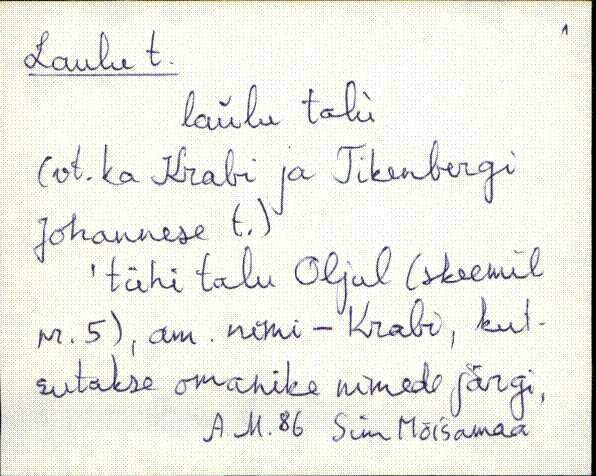 1
Laulu t.
laŭlu talù
(vt. ka Krabi ja Tikenbergi
Johannese t.)
'tühi talu Oljal (skeemil
nr. 5), am. nimi – Krabi, kut-
sutakse omanike nimede järgi,
A.M. 86 Siim Mõisamaa